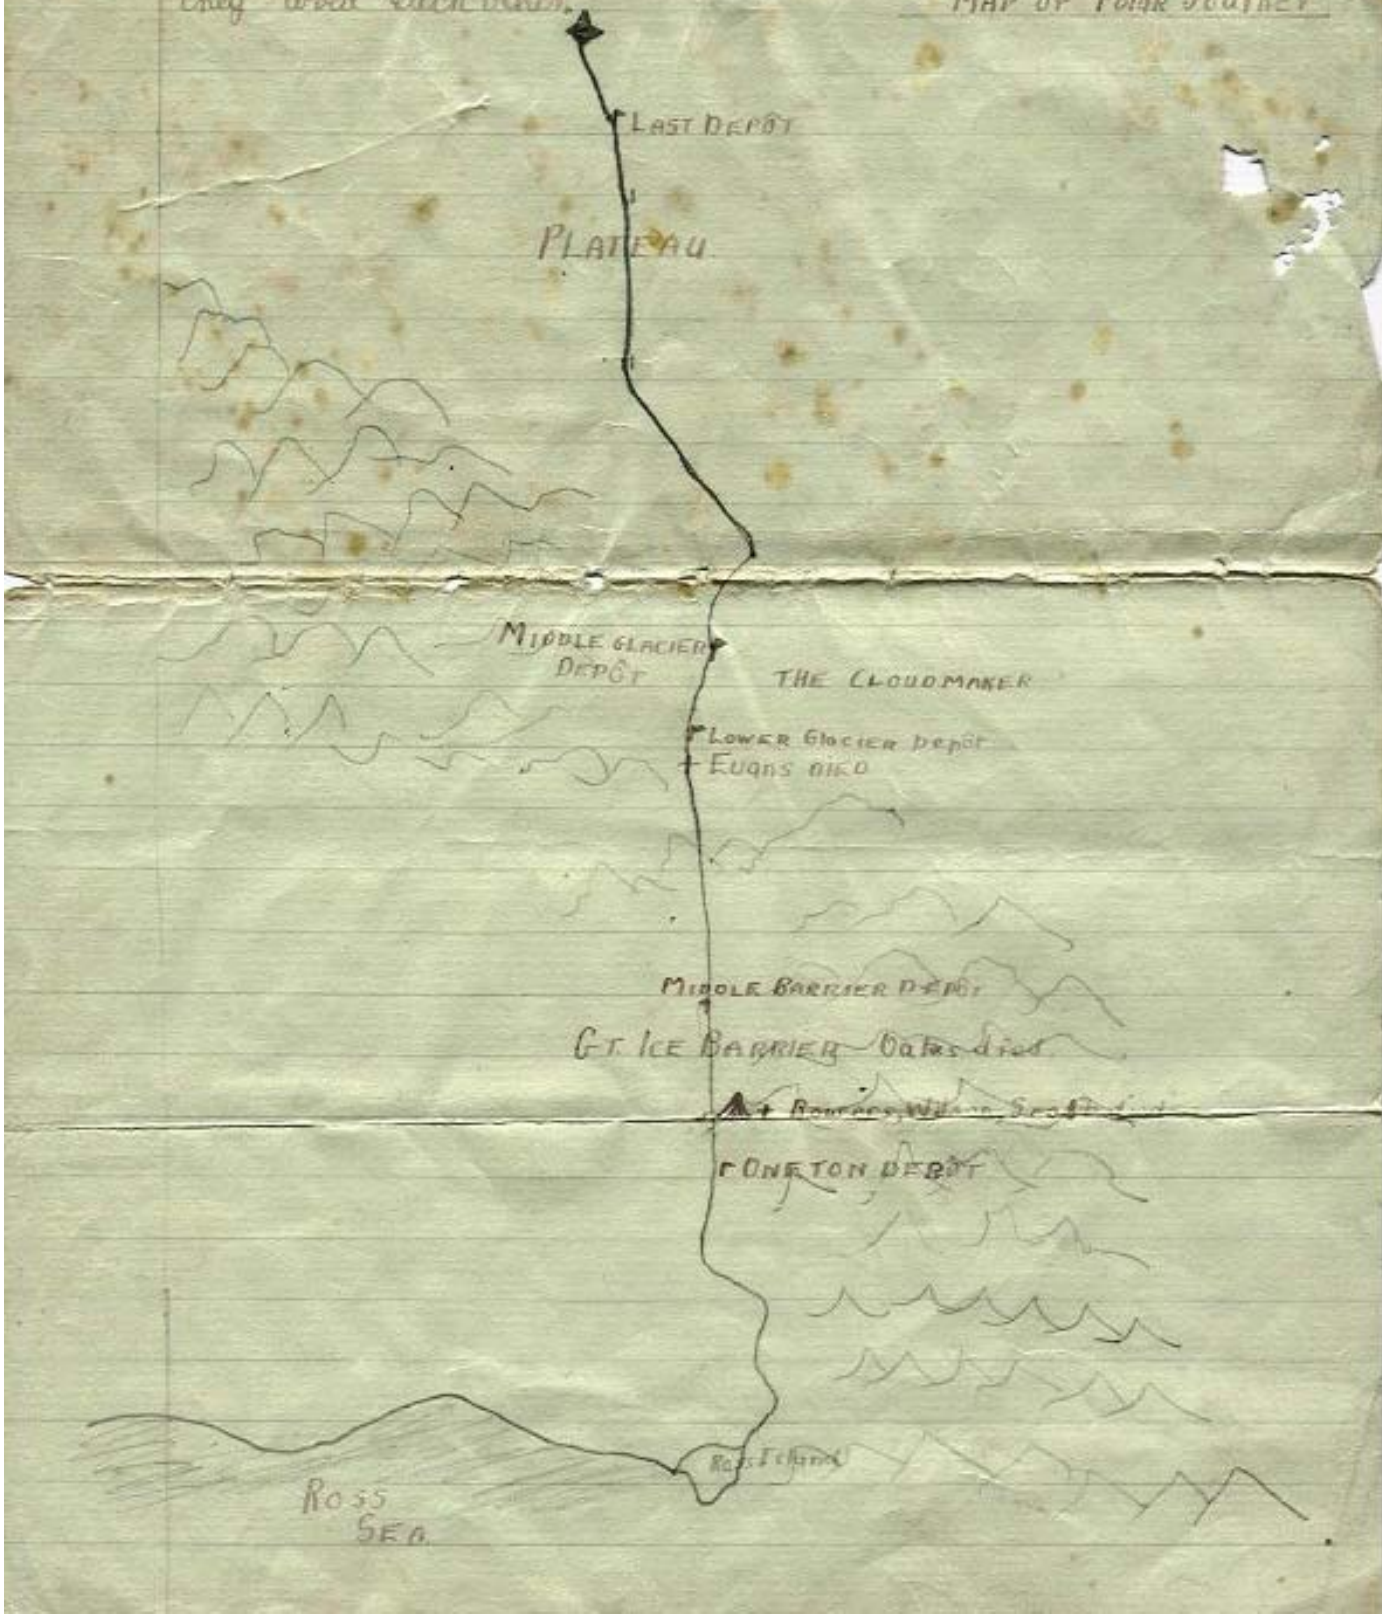 they loved each other.
MAP OF POLAR JOURNEY
LAST DEPÔT
PLATEAU
MIDDLE GLACIER
DEPÔT
THE CLOUDMAKER
LOWER GlACIER DepôT
EVANS DIED
MIDDLE BARRIER DEPÔT
GT. ICE BARRIER Oates died.
Bowers, Wilson, Scott died
ONE TON DEPÔT
Ross Island
ROSS
SEA